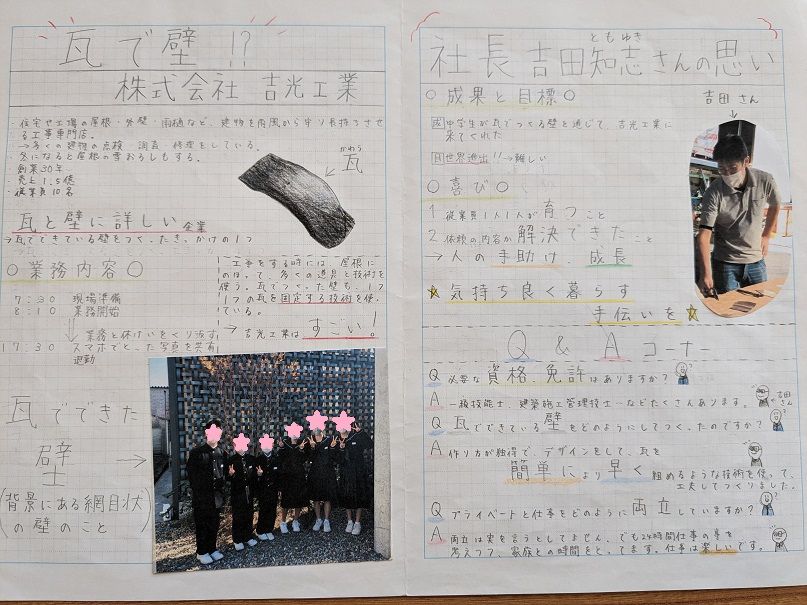 瓦で壁!?
株式会社 吉光工業
・住宅や工場の屋根・外壁・雨樋など、建物を雨風から守り長持ちさせ
る工事専門店。
→多くの建物の点検・調査・修理をしている。
・冬になると屋根の雪おろしもする。
・創業30年
・売上1.5億
・従業員10名
かわら
瓦
瓦と壁に詳しい企業
→瓦でできている壁をつくったきっかけの1つ
○業務内容○
7:30 現場準備
8:10 業務開始
業務と休けいをくり返す
17:30 スマホでとった写真を共有
退勤
工事をする時には、屋根に
のぼって、多くの道具と技術を
使う。瓦でつくった壁も、1つ
1つの瓦を固定する技術を使っ
ている。
→吉光工業はすごい!
瓦でできた
壁→
(背景にある網目状
の壁のこと)
ともゆき
社長 吉田知志さんの思い
○成果と目標○
吉田さん
国中学生が瓦でつくる壁を通じて、吉光工業に
来てくれた
目世界進出!!→難しい
○喜び○
1 従業員1人1人が育つこと
2 依頼の内容が解決できたこと
→人の手助け、成長
★気持ち良く暮らす
手伝いを★
Q&Aコーナー
Q 必要な資格、免許はありますか?
A 一級技能士、建築施工管理技士…などたくさんあります。
吉田さん
Q 瓦でできている壁をどのようにしてつくったのですか?
A 作り方が独得で、デザインをして、瓦を
簡単により早く組めるような技術を使って、
工夫してつくりました。
Q プライベートと仕事をどのように両立していますか?
A 両立は実を言うとしてません。でも24時間仕事の事を
考えつつ、家族との時間をとってます。仕事は楽しいです。